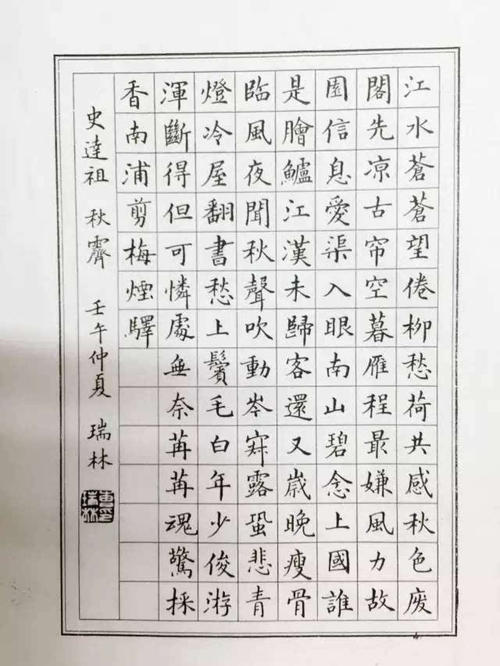 江水蒼蒼望倦柳愁荷共感秋色廢
閣先凉古帘空暮雁程最嫌風力故
園信息愛渠入眼南山碧念上國誰
是膾鱸江漢未歸客還又歲晚瘦骨
臨風夜聞秋聲吹動岑寂露蛩悲青
燈冷屋翻書愁上鬢毛白年少俊游
渾斷得但可憐處無奈苒苒魂驚採
香南浦剪梅煙驛
史達祖 秋霽 壬午仲夏 瑞林